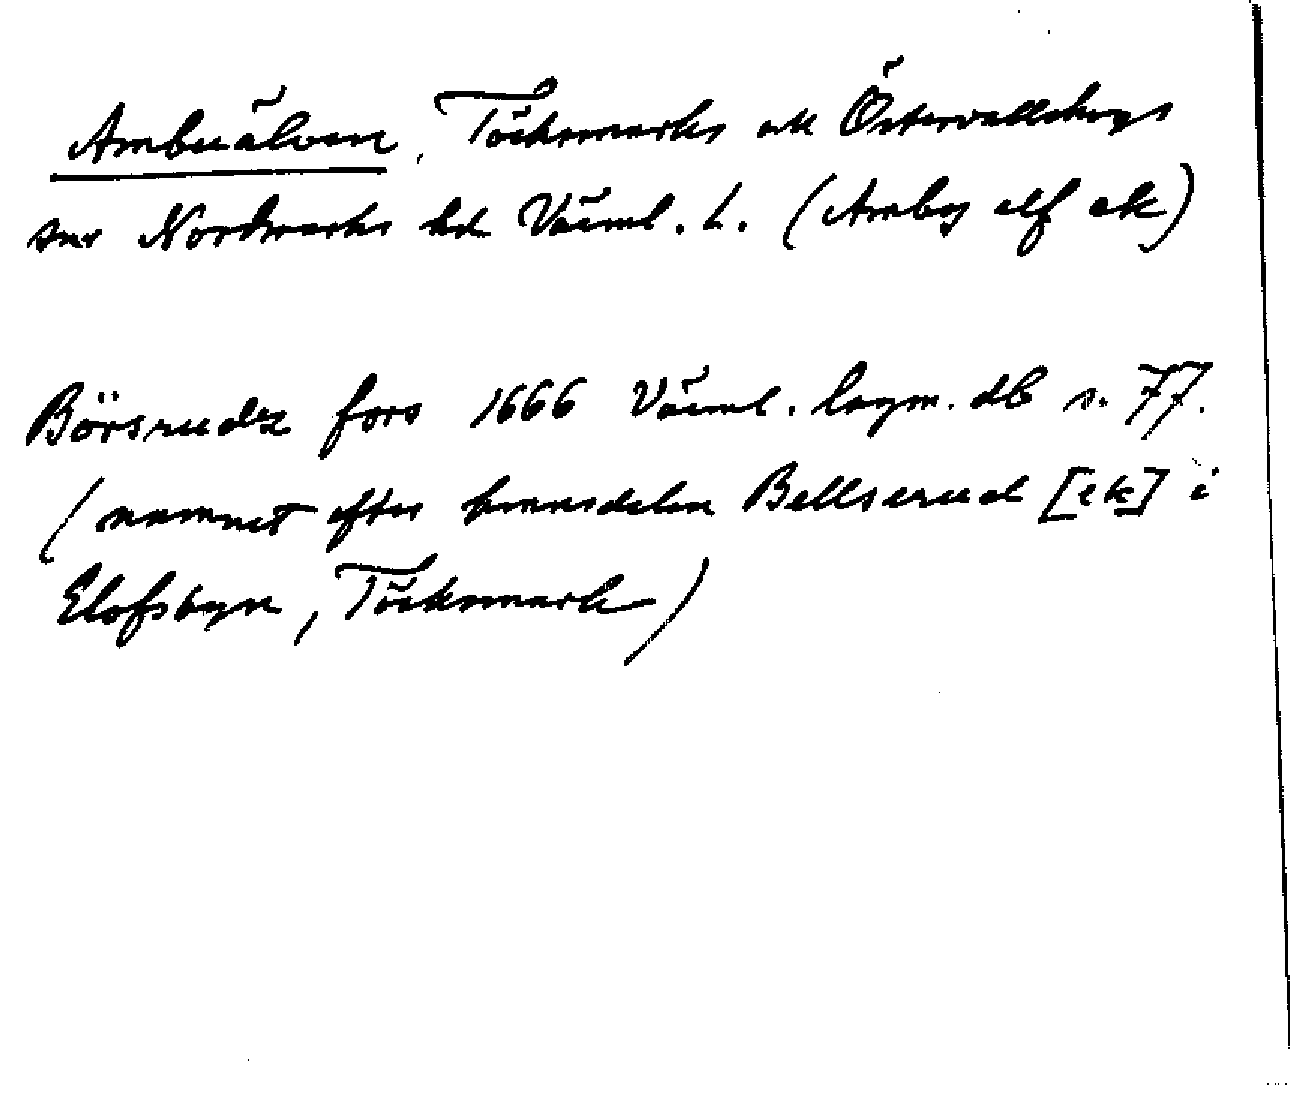 Ambuälven, Töcksmarks ock Östervallskogs
snr Nordmarks hd Värml. L. (Amby elf ek)
Börsrudz fors 1666 Värml. lagm. db s. 77.
(namnet efter hemsdelen Bellserud [ek] i
Elofsbyn, Töcksmark)